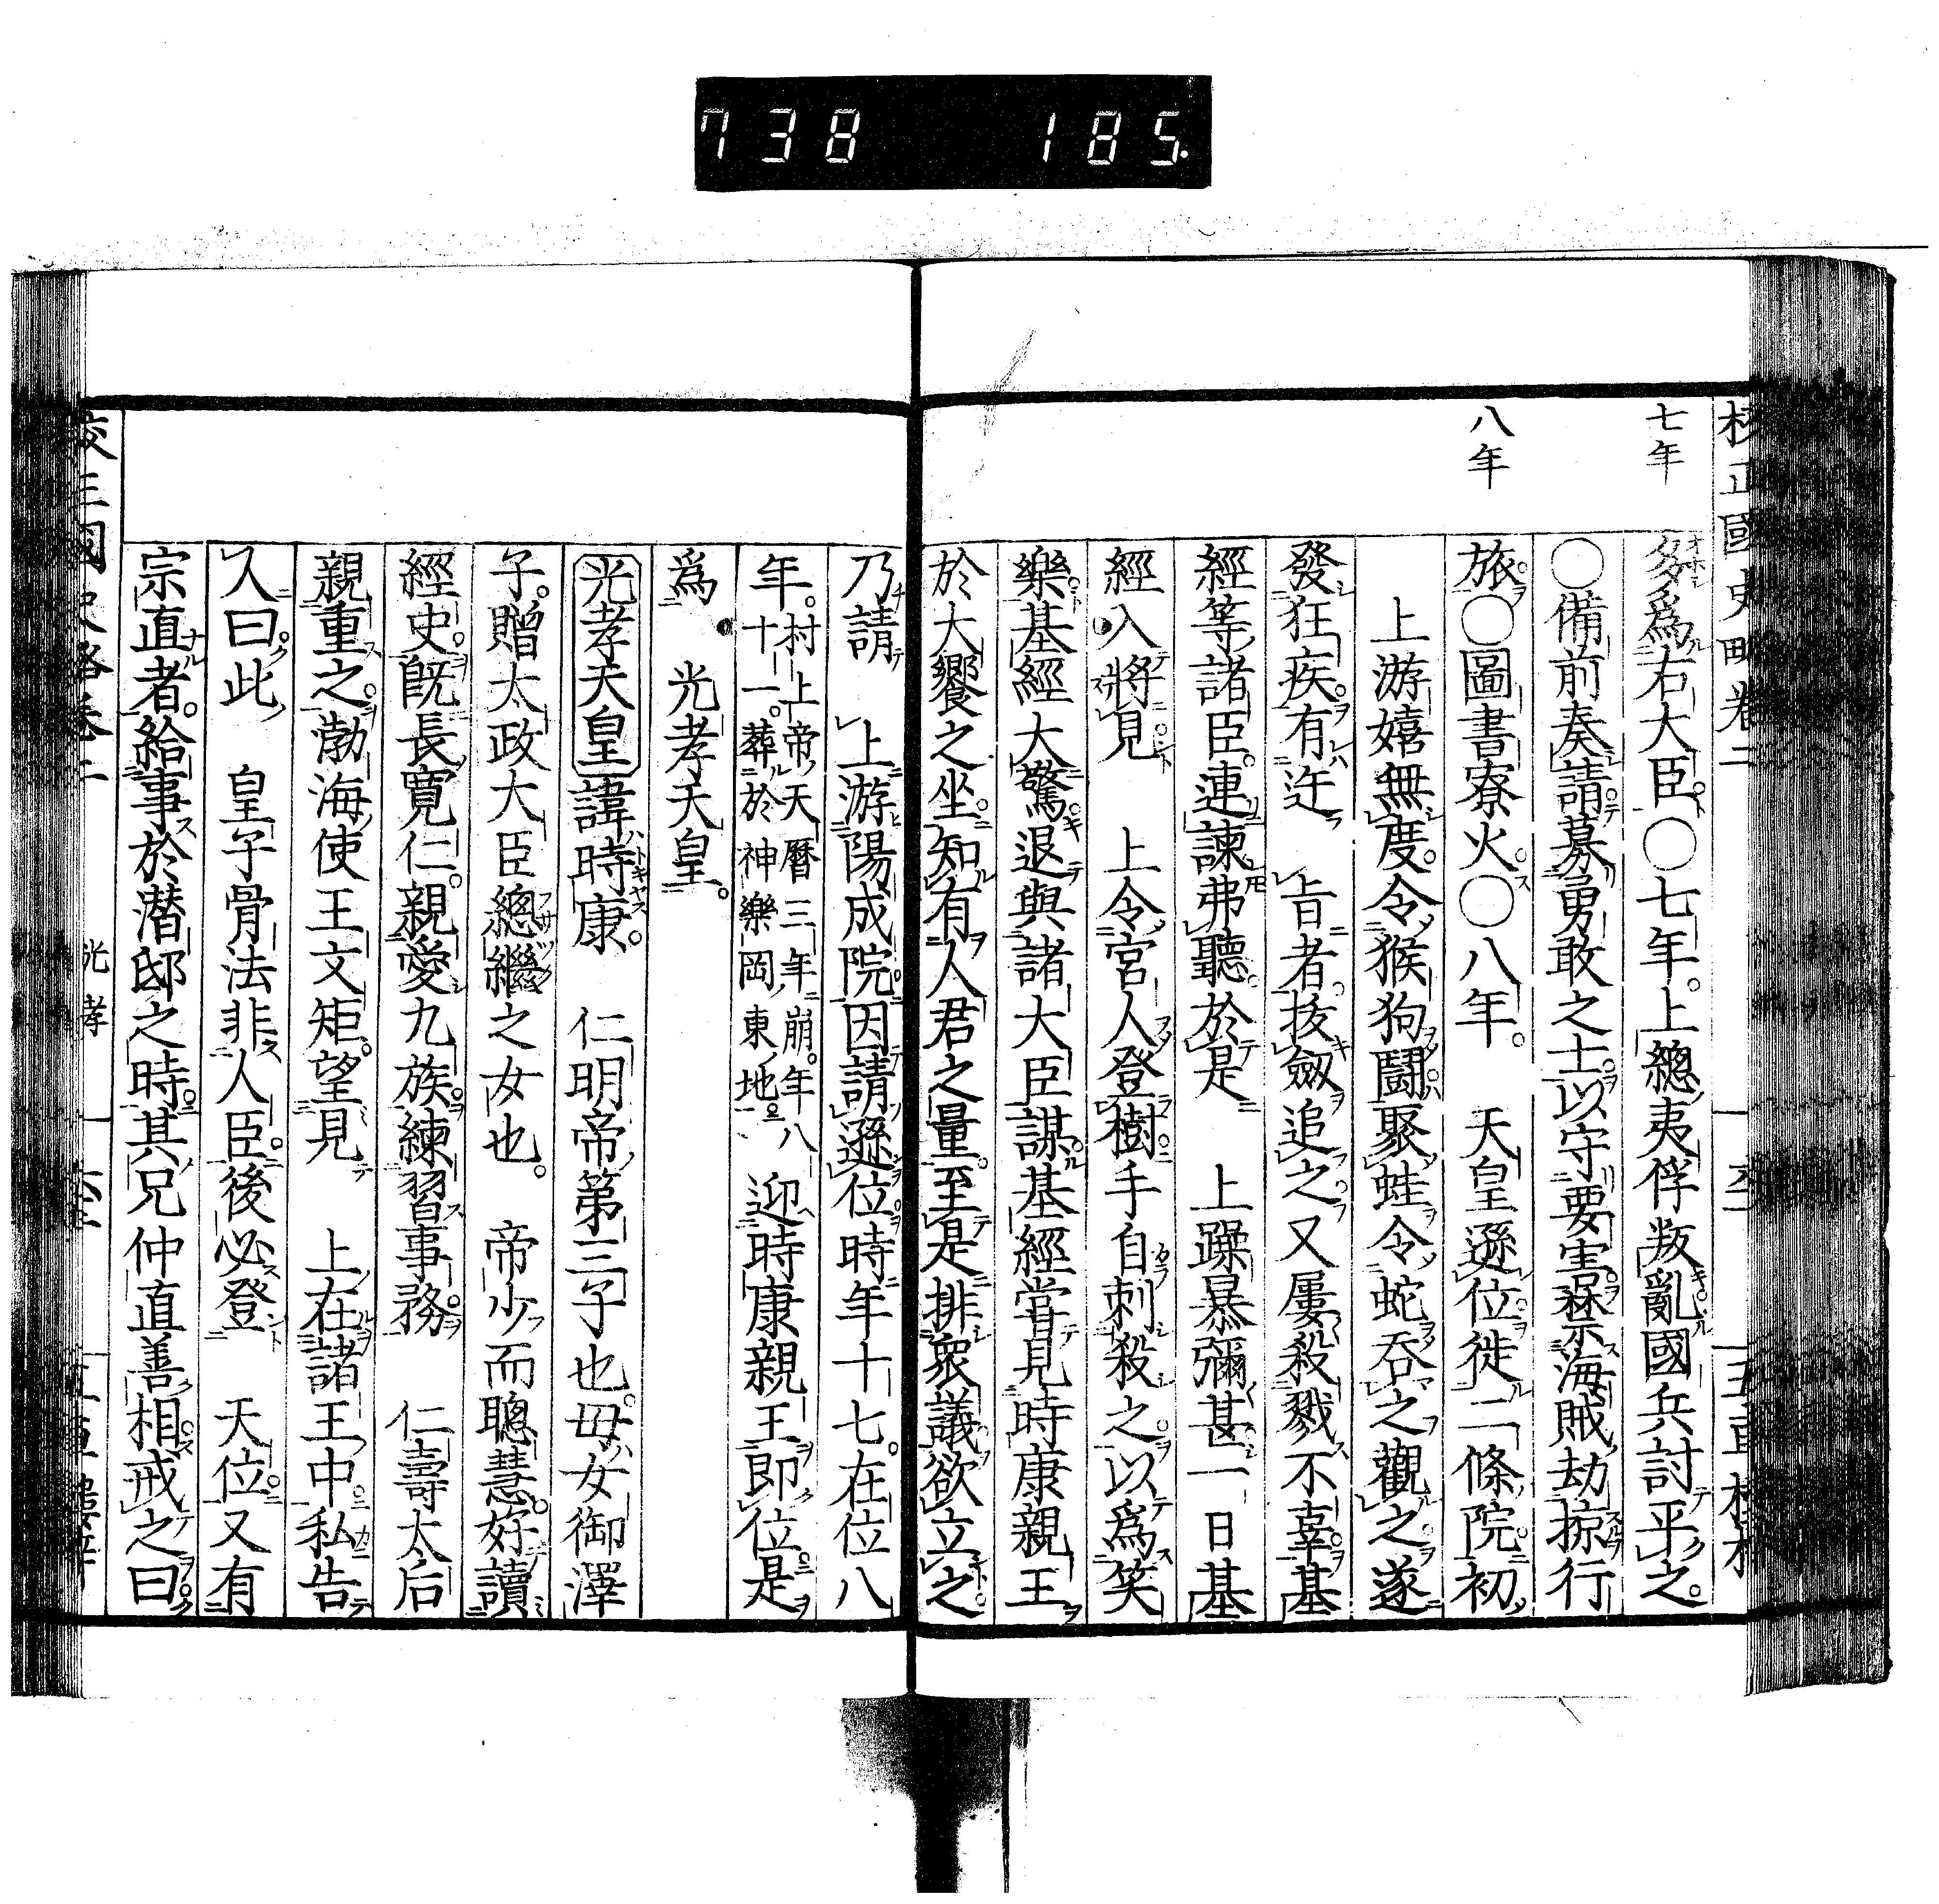 738 185.
校正國史略卷二
七年
多爲右大臣○七年上總夷俘叛亂國兵討平之
○備前奏請募勇敢之士以守要害禁海賊劫掠行
八年
旅○圖書寮火○八年 天皇遜位徙二條院初
上游嬉無度令猴狗鬪聚蛙令蛇吞之觀之遂
發狂疾有迕 旨者拔劔追之又屢殺戮不辜基
經等諸臣連諫弗聽於是 上躁暴彌甚一日基
經入將見 上令宮人登樹手自刺殺之以爲笑
樂基經大驚退與諸大臣謀基經嘗見時康親王
於大饗之坐知有人君之量至是排衆議欲立之
乃請 上游陽成院因請遜位時年十七在位八
年村上帝天曆三年崩年八十一葬於神樂岡東地 迎時康親王即位是
爲 光孝天皇
光孝天皇諱時康 仁明帝第三子也母女御澤
子贈太政大臣總繼之女也 帝少而聰慧好讀
經史既長寬仁親愛九族練習事務 仁壽太后
親重之渤海使王文矩望見 上在諸王中私告
人曰此 皇子骨法非人臣後必登 天位又有
宗直者給事於潛邸之時其兄仲直善相戒之曰
光孝